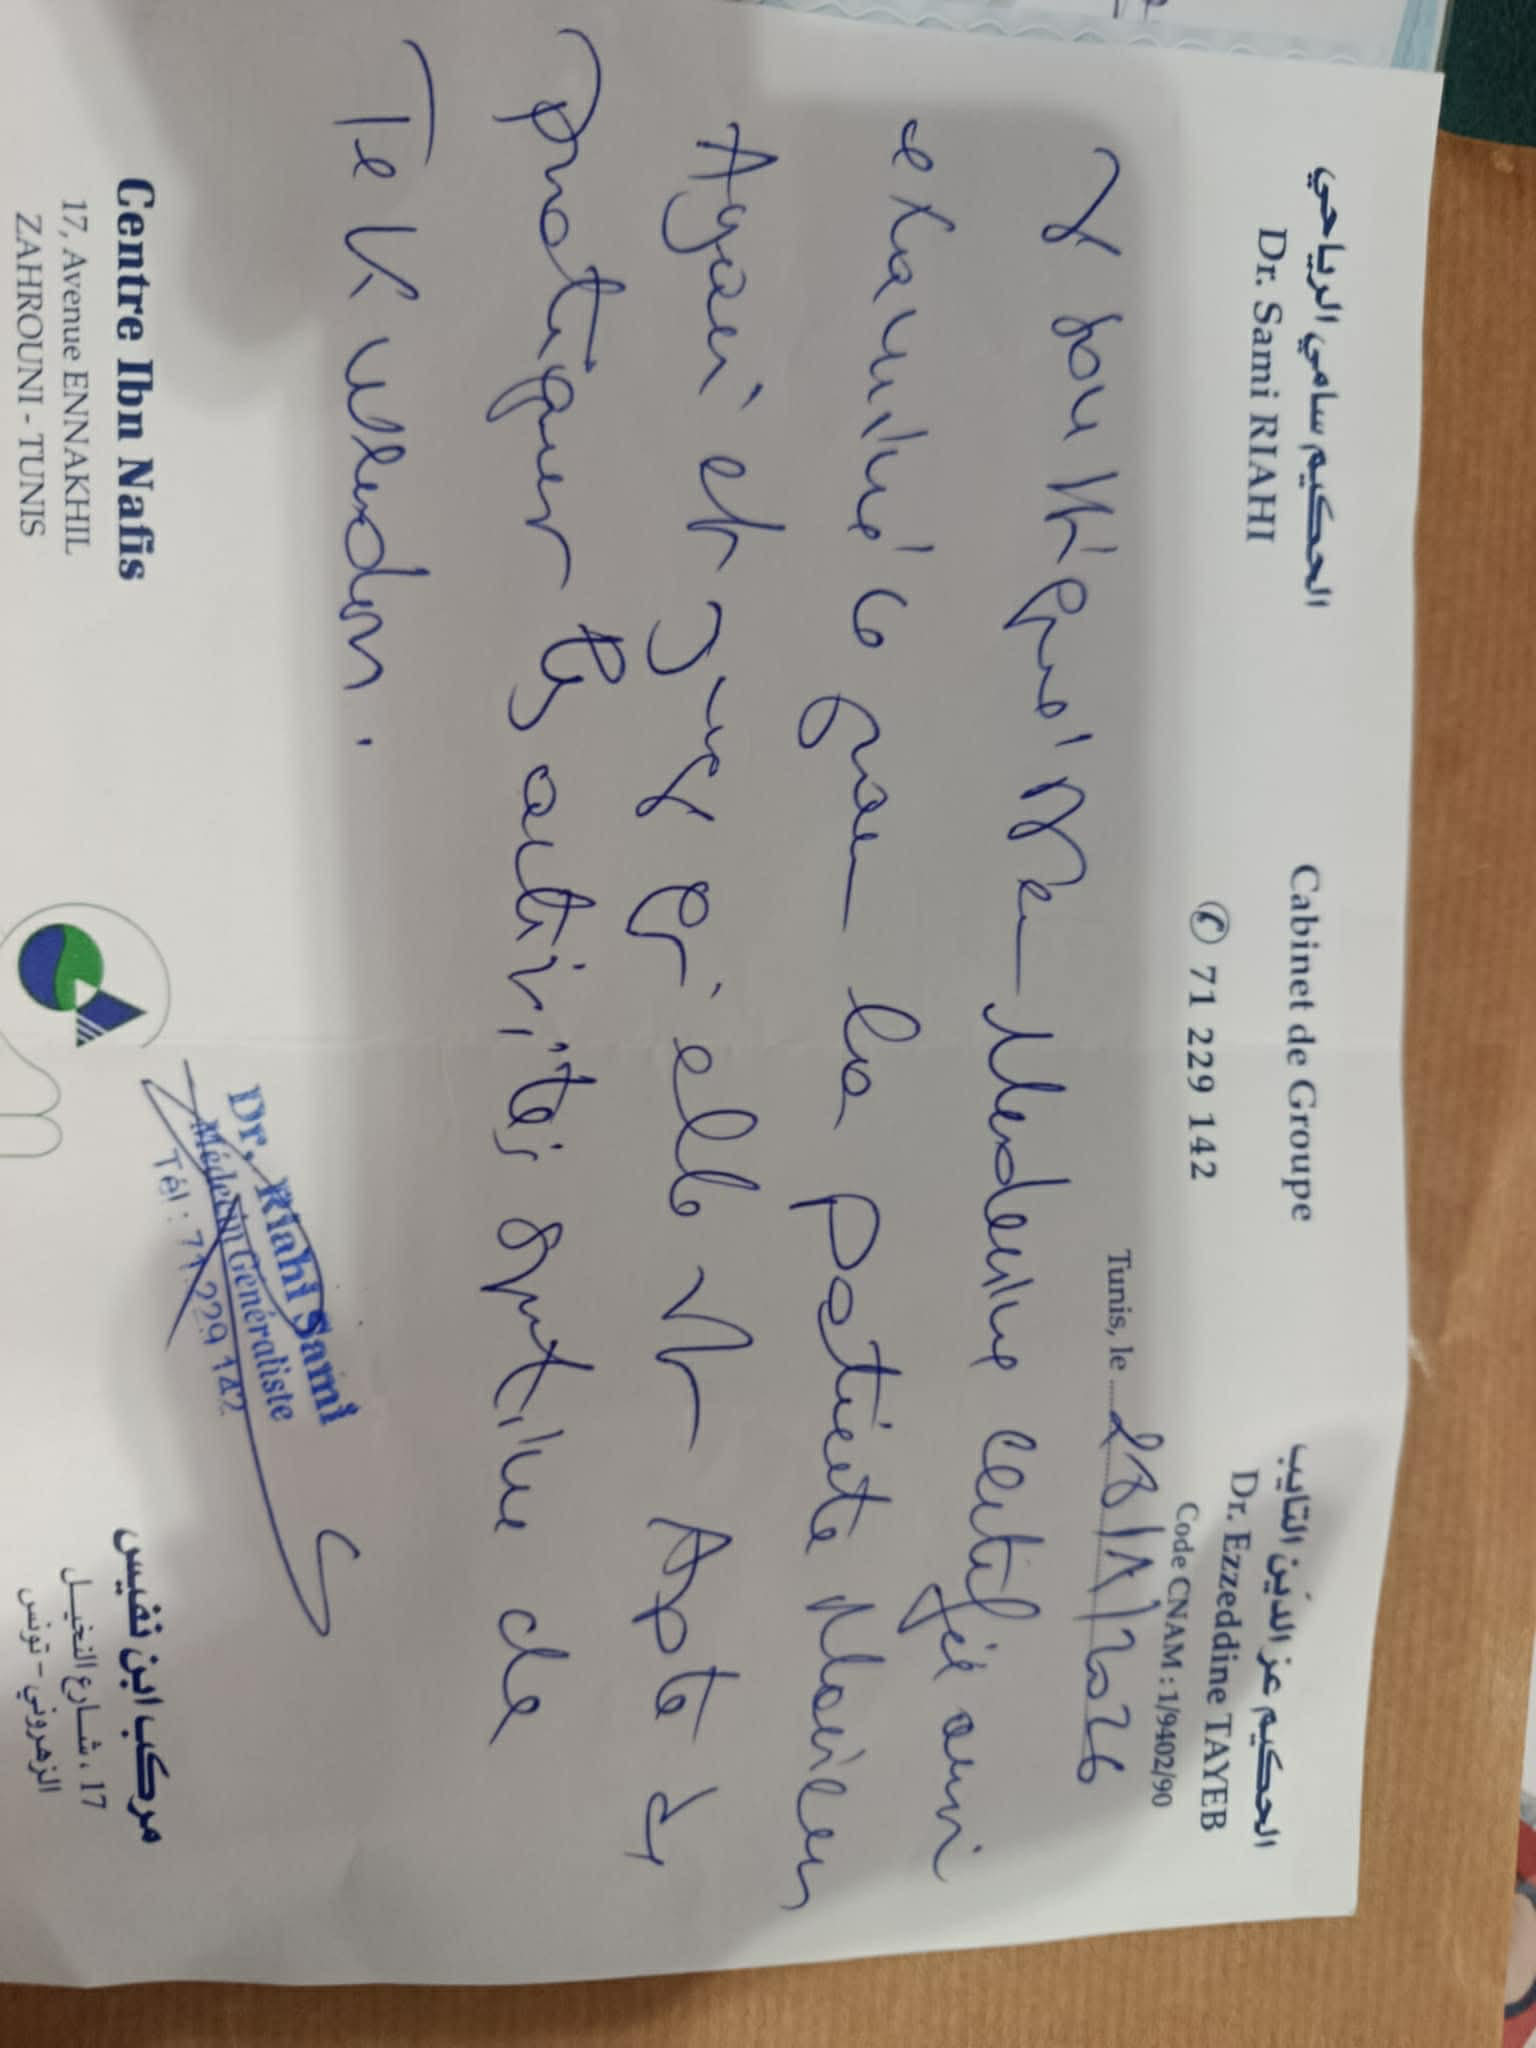 الحكيم سامي الرياحي
Dr. Sami RIAHI
Cabinet de Groupe
✆ 71 229 142
الحكيم عز الدين التايب
Dr. Ezzeddine TAYEB
Code CNAM : 1/9402/90
Tunis, le 28/1/2026
Je soussigné Dr en Médecine certifie avoir
examiné ce jour la patiente
Ayari et jugé qu'elle est Apte à
pratiquer les activités sportive de
Tekwendon.
Dr. Riahi Sami
Médecin Généraliste
Tél : 71 229 142
Centre Ibn Nafis
17, Avenue ENNAKHIL
ZAHROUNI - TUNIS
مركب ابن نفيس
17، شارع النخيل
الزهروني - تونس